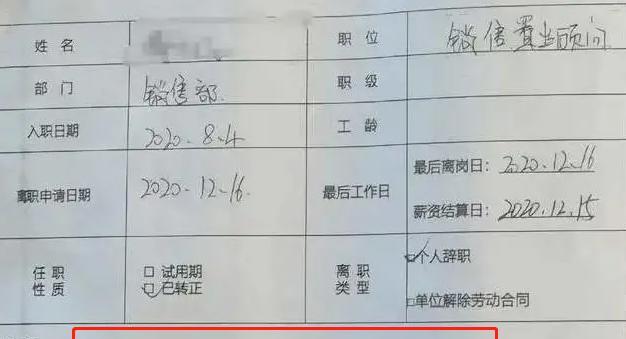 姓名 职位 销售置业顾问
部门 销售部 职级
入职日期 2020.8.4 工龄
离职申请日期 2020-12-16. 最后工作日 最后离岗日：2020.12.16
薪资结算日：2020.12.15
任职性质 □ 试用期 离职类型 ☑个人辞职
☑ 已转正 □单位解除劳动合同